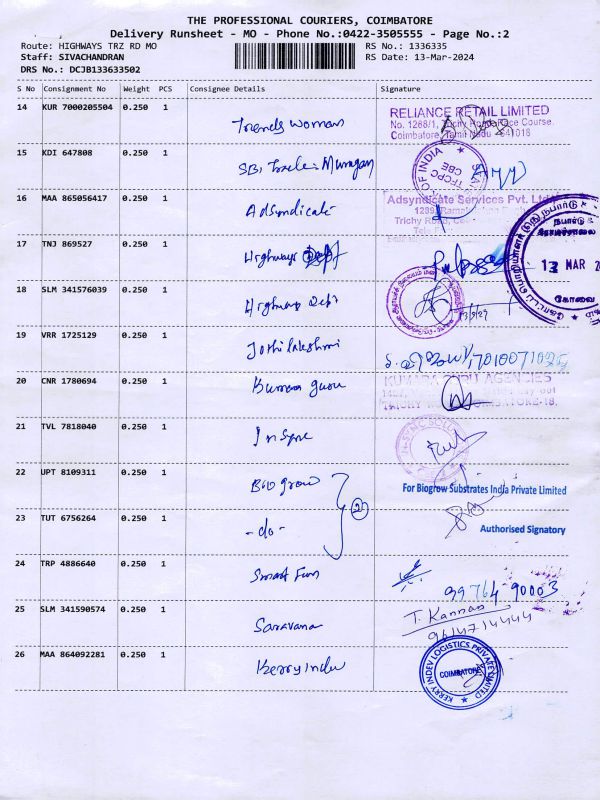 THE PROFESSIONAL COURIERS, COIMBATORE
Delivery Runsheet - MO - Phone No.:0422-3505555 - Page No.:2
Route: HIGHWAYS TRZ RD MO
RS No.: 1336335
Staff: SIVACHANDRAN
RS Date: 13-Mar-2024
DRS No.: DCJB133633502
S No Consignment No Weight PCS Consignee Details Signature
14 KUR 7000205504 0.250 1 Trends woman
RELIANCE RETAIL LIMITED
No. 1268/1, Trichy Road, Race Course,
Coimbatore, Tamil Nadu - 641018
15 KDI 647808 0.250 1 SBI Murugan
OF INDIA
TFCPC
CBE
16 MAA 865056417 0.250 1 Adsyndicate
Adsyndicate Services Pvt. Ltd
Trichy Road,
17 TNJ 869527 0.250 1 Highways Dept
நபார்டு
13 MAR
கோவை
18 SLM 341576039 0.250 1 Highways Dept
19 VRR 1725129 0.250 1 Jothilakshmi
20 CNR 1780694 0.250 1 Kumara guru
KUMARA GURU AGENCIES
21 TVL 7818040 0.250 1 Inspire
22 UPT 8109311 0.250 1 Bio grow
2
For Biogrow Substrates India Private Limited
23 TUT 6756264 0.250 1 - do -
Authorised Signatory
24 TRP 4886640 0.250 1 Smart Fun
99764 90003
25 SLM 341590574 0.250 1 Saravana
T. Kannan
9614714444
26 MAA 864092281 0.250 1 Kerry Indev
KERRY INDEV LOGISTICS PRIVATE LIMITED
COIMBATORE